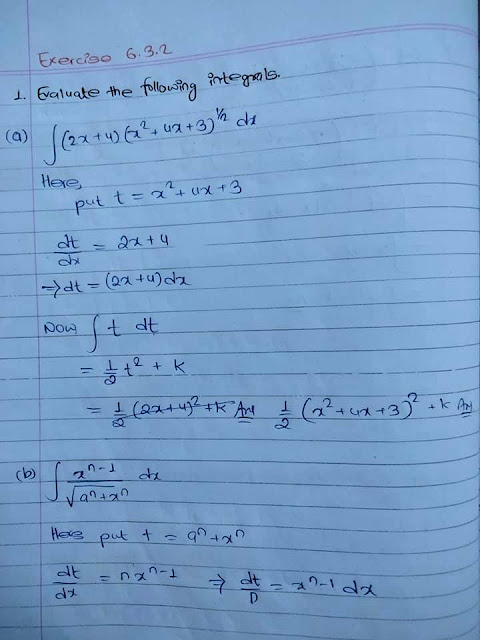 Exercise 6.3.2
1. Evaluate the following integrals.
(a) ∫(2x+4)(x²+4x+3)^1/2 dx
Here,
put t = x²+4x+3
dt/dx = 2x+4
⇒ dt = (2x+4)dx
Now ∫ t dt
= 1/2 t² + k
= 1/2 (2x+4)² + k Ans 1/2 (x²+4x+3)² + k Ans
(b) ∫ x^n-1/√a^n+x^n dx
Here put t = a^n+x^n
dt/dx = nx^n-1 ⇒ dt/n = x^n-1 dx